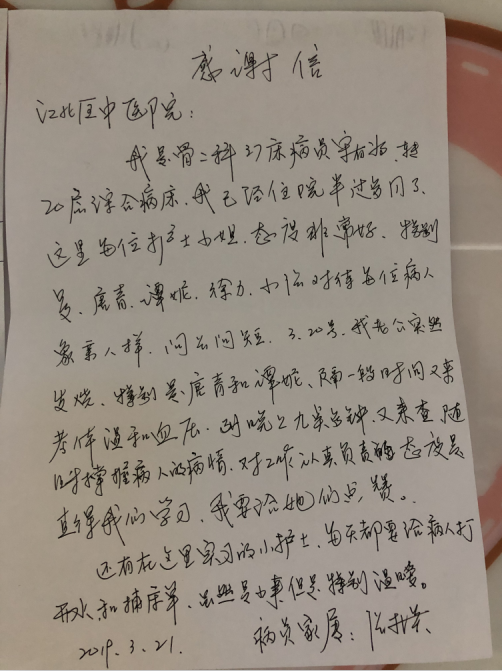 感谢信
江北区中医院:
我是骨二科37床病员 转
20层综合病床、我已经住院半过多月了、
这里每位护士小姐、态度非常好、特别
是、唐青、谭妮、徐力、小 对待每位病人
象亲人样、问长问短、3.20号、我老公突然
发烧、特别是唐青和谭妮、隔一段时间又来
考体温和血压、到晚上九点多钟、又来查、随
时掌握病人的病情、对工作认真负责的态度是
直得我们学习、我要给她们点赞。
还有在这里实习的小护士、每天都要给病人打
开水和铺床单、虽然是小事但是特别温暖。
2019.3.21. 病员家属: